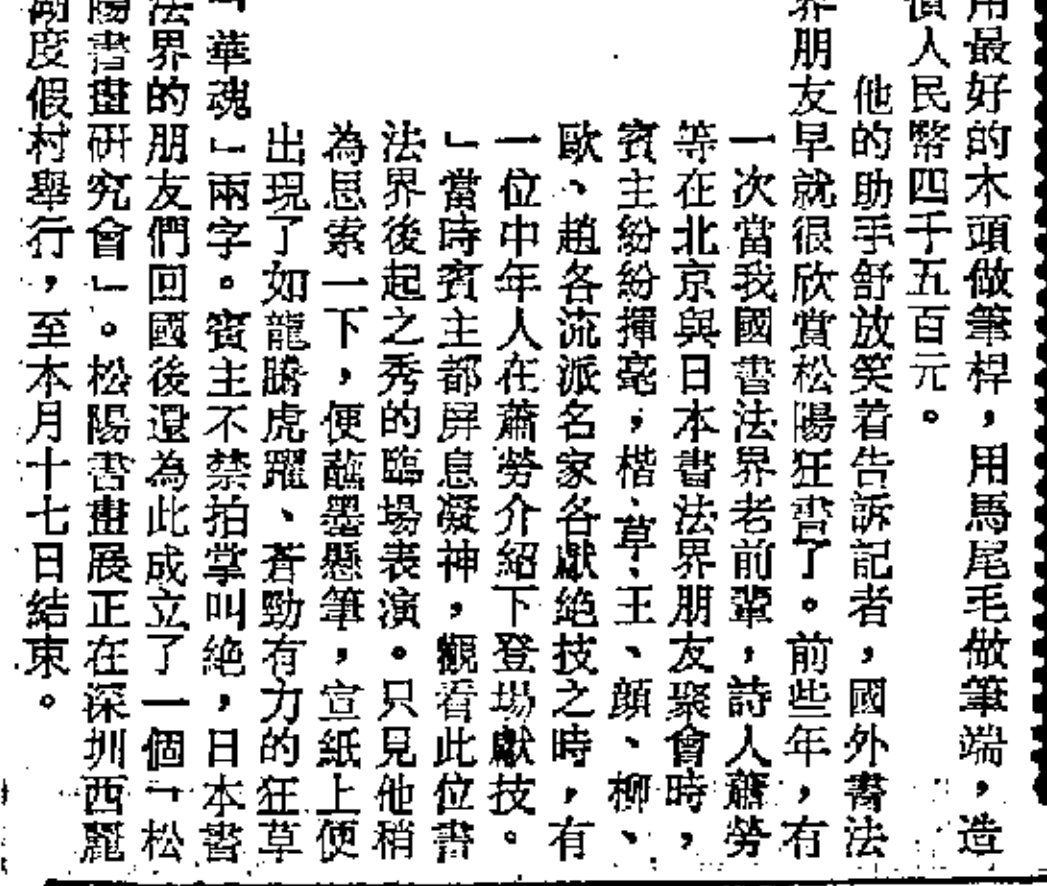 用最好的木頭做筆桿，用馬尾毛做筆端，造
價人民幣四千五百元。
他的助手舒放笑着告訴記者，國外書法
界朋友早就很欣賞松陽狂書了。前些年，有
一次當我國書法界老前輩，詩人蕭勞
等在北京與日本書法界朋友聚會時，
賓主紛紛揮毫，楷、草、王、顏、柳、
歐、趙各流派名家各獻絶技之時，有
一位中年人在蕭勞介紹下登場獻技。
」當時賓主都屏息凝神，觀看此位書
法界後起之秀的臨場表演。只見他稍
為思索一下，便蘸墨懸筆，宣紙上便
出現了如龍騰虎躍、蒼勁有力的狂草
「華魂」兩字。賓主不禁拍掌叫絶，日本書
法界的朋友們回國後還為此成立了一個「松
陽書畫研究會」。松陽書畫展正在深圳西麗
湖度假村舉行，至本月十七日結束。